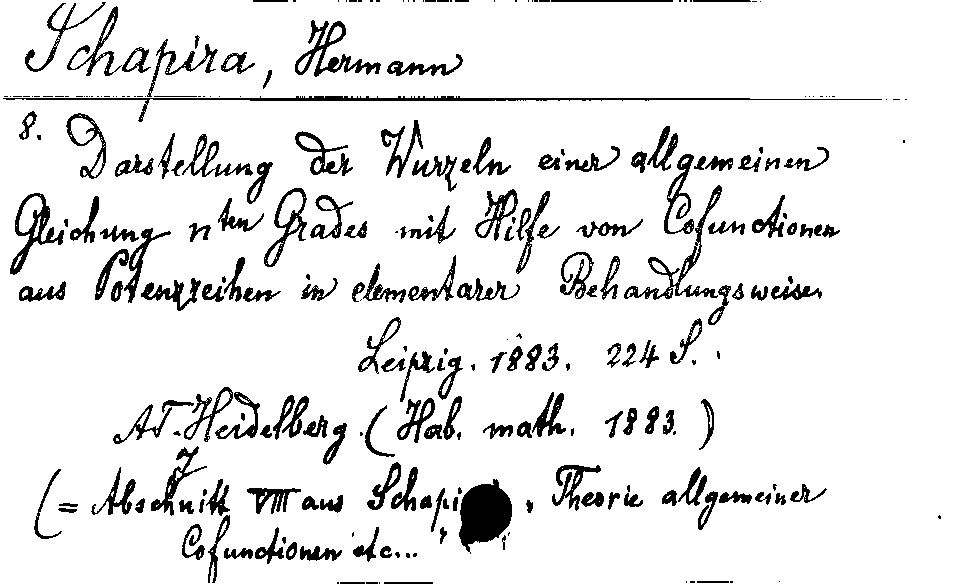 Schapira, Hermann
8.
Darstellung der Wurzeln einer allgemeinen
Gleichung nten Grades mit Hilfe von Cofunctionen
aus Potenzreihen in elementarer Behandlungsweise.
Leipzig. 1883. 224 S.
AT. Heidelberg. (Hab. math. 1883.)
(= Abschnitt VIII aus Schapi , Theorie allgemeiner
Cofunctionen etc..."